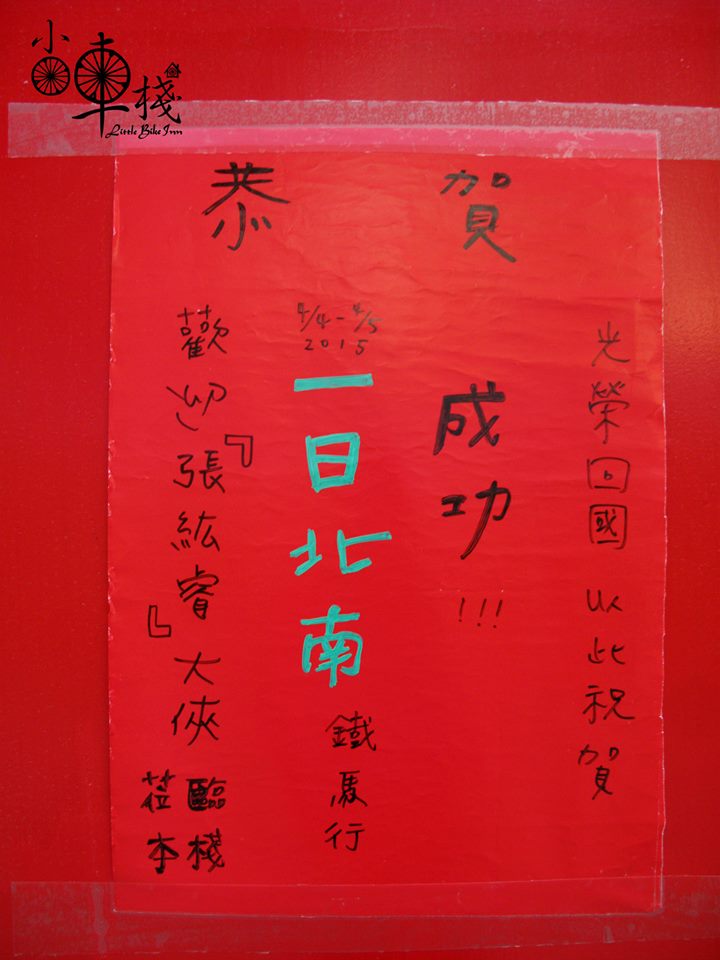 小車棧
Little Bike Inn
恭賀
歡迎『張紘睿』大俠
蒞臨
本棧
4/4-4/5
2015
一日北南
鐵馬行
成功!!!
光榮回國 以此祝賀